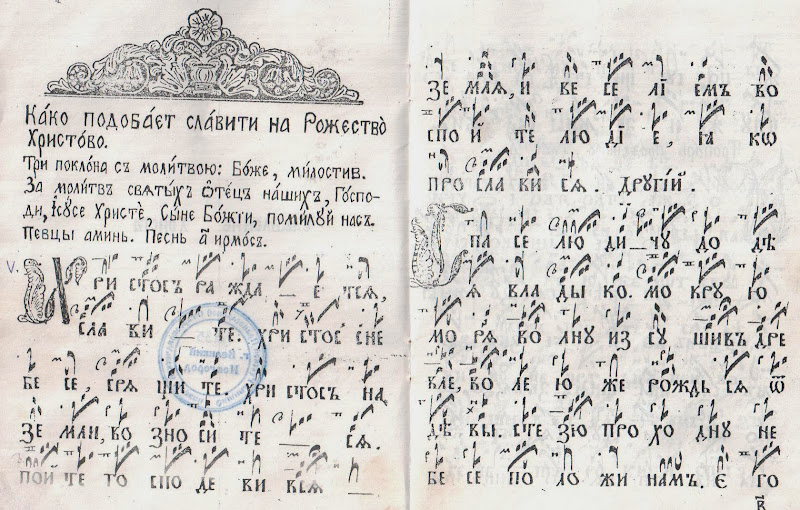 Ка́ко подоба́ет сла́вити на Рожество̀
Христо́во.
Три покло́на съ моли́твою: Бо́же, ми́лостив.
За моли́твъ святы́хъ ѻ҆те́цъ на́шихъ, Го́спо-
ди, І҆сусе Христѐ, Сы́не Бо́жги, поми́луй насъ.
Певцы аминь. Песнь а҃ ирмо́съ.
Х ри стосъ ра жда _ е тся,
сла ви _ те. хри стос сне
бе се, сря щи те. хри стосъ на
зе мли, во зно си те _ ся.
пой те го спо де ви вся _
зе мля, и ве се лі емъ во
спой те лю ді е, ꙗ кѡ
про сла ви ся. Другій.
С па се лю ди_чу до дѣ
я вла ды ко. мо кру ю
мо ря во лну из су шивъ дре
вле, во ле ю же рождь ся ѿ
дѣ вы. сте зю про хо дну не
бе се по ло жи намъ. є го
в҃
г. Великий
Новгород